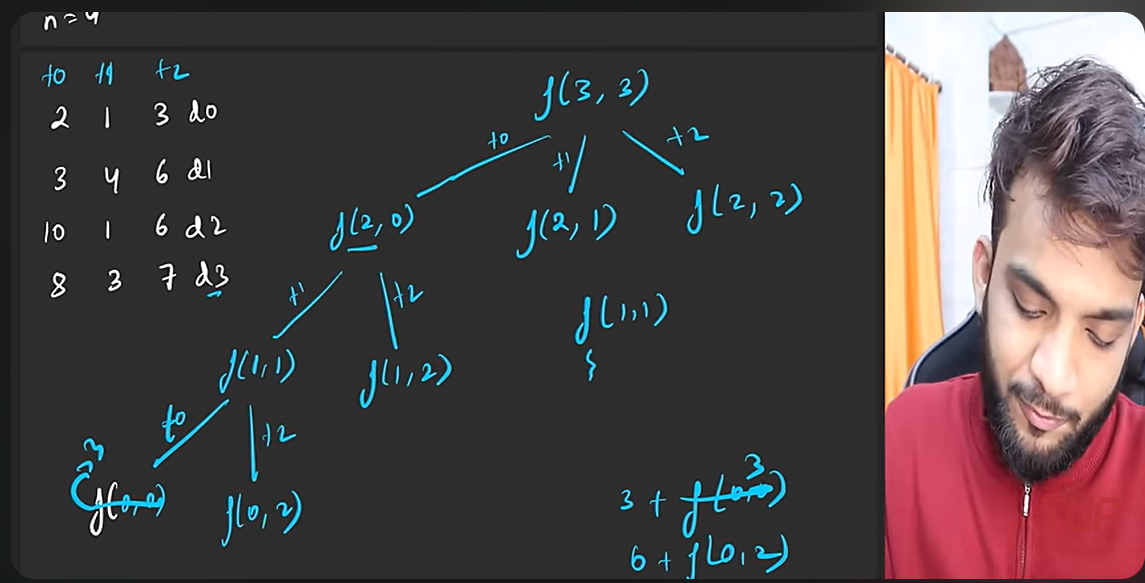 n = 4
t0 t1 t2
2 1 3 d0
3 4 6 d1
10 1 6 d2
8 3 7 d3
f(3, 3)
t0 t1 t2
f(2, 0) f(2, 1) f(2, 2)
t1 t2
f(1, 1)
{
f(1, 1) f(1, 2)
t0 t2
3
f(0, 0) f(0, 2)
3
3 + f(0, 0)
6 + f(0, 2)